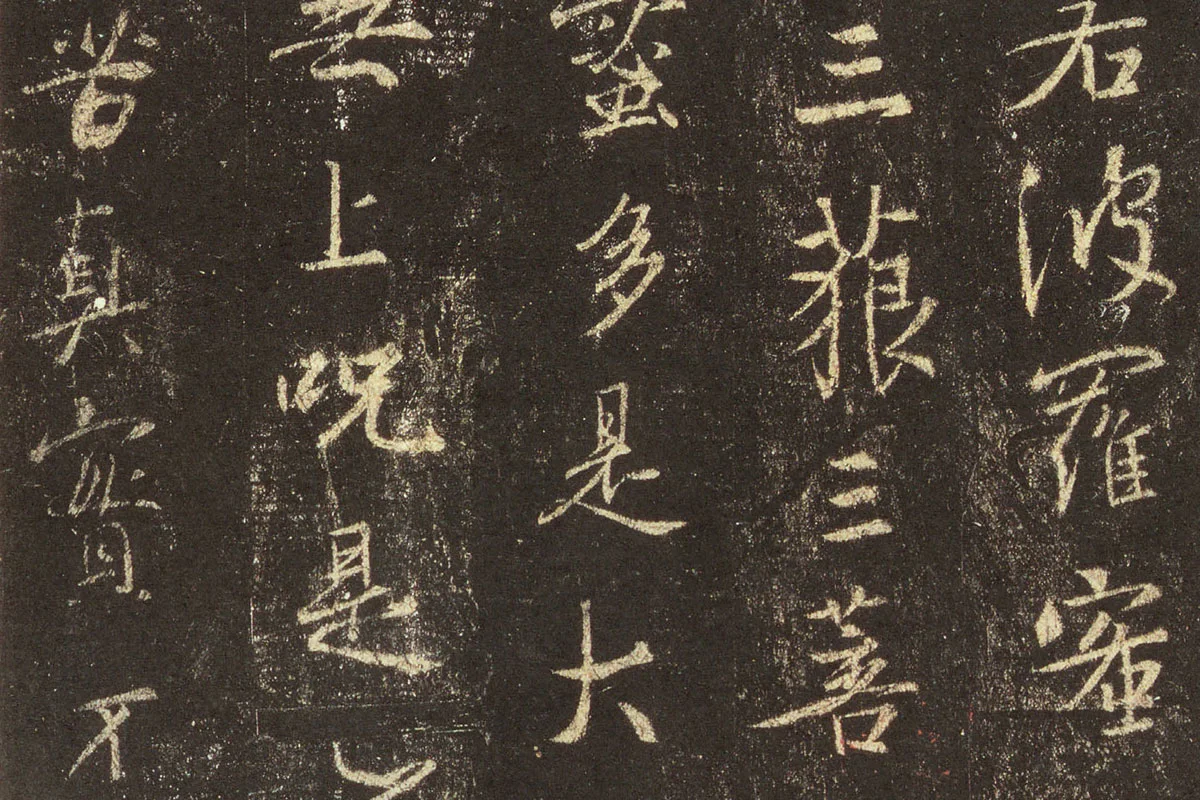 若波羅蜜
三藐三菩
蜜多是大
無上呪是
苦真實不